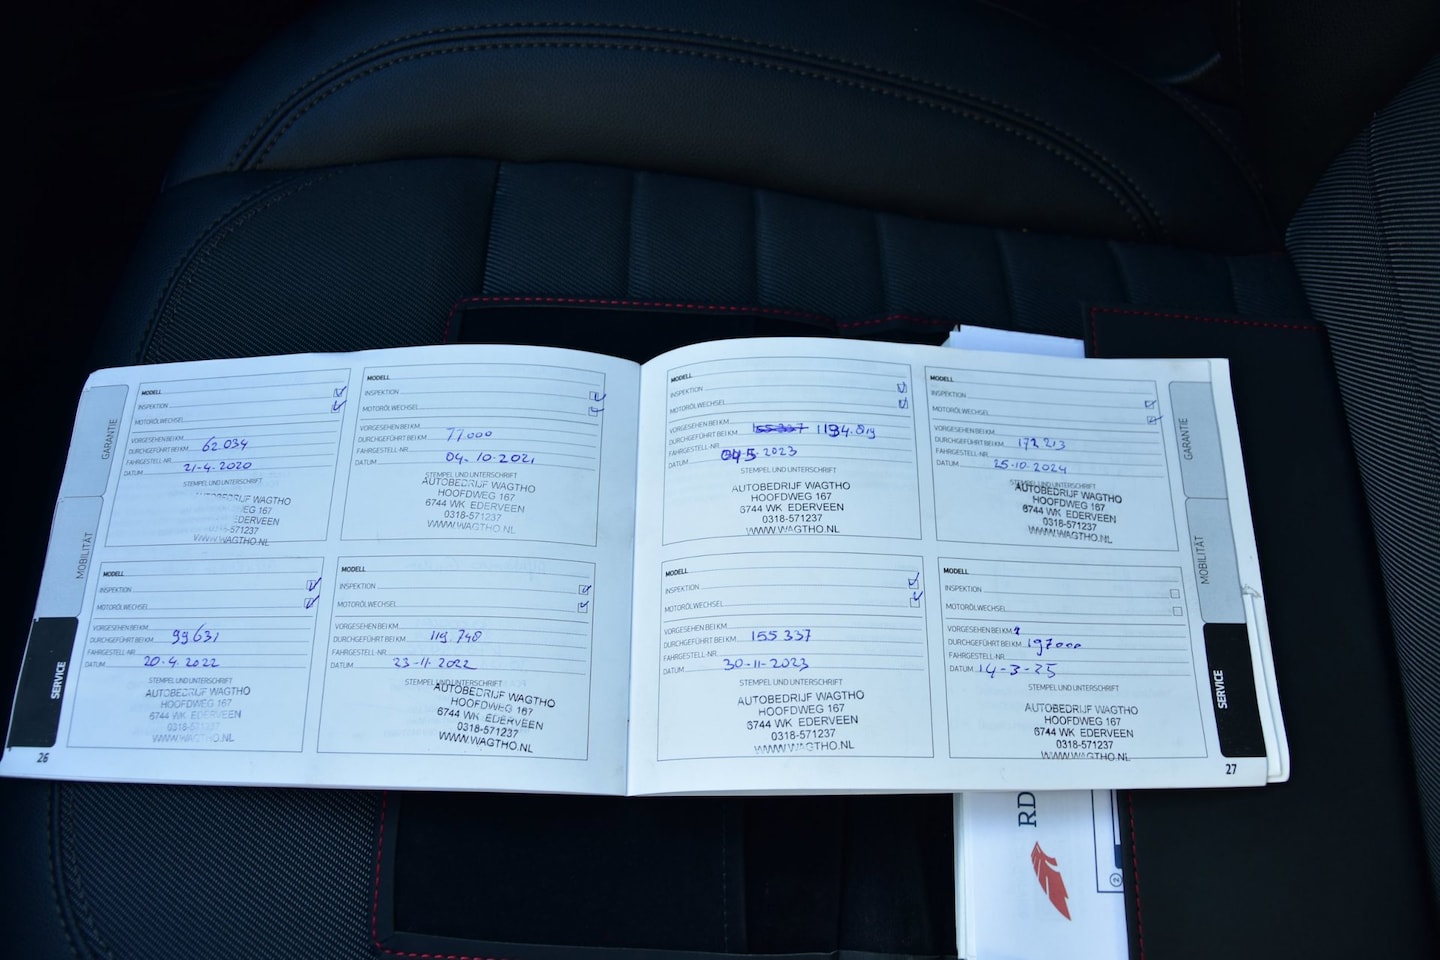 GARANTIE
MOBILITÄT
SERVICE
26
MODELL
INSPEKTION
MOTORÖLWECHSEL
VORGESEHEN BEI KM
DURCHGEFÜHRT BEI KM 62.034
FAHRGESTELL-NR.
DATUM 21-4-2020
STEMPEL UND UNTERSCHRIFT
AUTOBEDRIJF WAGTHO
WEG 167
EDERVEEN
571237
WWW.WAGTHO.NL
MODELL
INSPEKTION
MOTORÖLWECHSEL
VORGESEHEN BEI KM
DURCHGEFÜHRT BEI KM 77.000
FAHRGESTELL-NR.
DATUM 04-10-2021
STEMPEL UND UNTERSCHRIFT
AUTOBEDRIJF WAGTHO
HOOFDWEG 167
6744 WK EDERVEEN
0318-571237
WWW.WAGTHO.NL
MODELL
INSPEKTION
MOTORÖLWECHSEL
VORGESEHEN BEI KM
DURCHGEFÜHRT BEI KM 99631
FAHRGESTELL-NR.
DATUM 20-4-2022
STEMPEL UND UNTERSCHRIFT
AUTOBEDRIJF WAGTHO
HOOFDWEG 167
6744 WK EDERVEEN
0318-571237
WWW.WAGTHO.NL
MODELL
INSPEKTION
MOTORÖLWECHSEL
VORGESEHEN BEI KM
DURCHGEFÜHRT BEI KM 119.748
FAHRGESTELL-NR.
DATUM 23-11-2022
STEMPEL UND UNTERSCHRIFT
AUTOBEDRIJF WAGTHO
HOOFDWEG 167
6744 WK EDERVEEN
0318-571237
WWW.WAGTHO.NL
MODELL
INSPEKTION
MOTORÖLWECHSEL
VORGESEHEN BEI KM
DURCHGEFÜHRT BEI KM 155337
FAHRGESTELL-NR.
DATUM 5-2023
STEMPEL UND UNTERSCHRIFT
AUTOBEDRIJF WAGTHO
HOOFDWEG 167
6744 WK EDERVEEN
0318-571237
WWW.WAGTHO.NL
MODELL
INSPEKTION
MOTORÖLWECHSEL
VORGESEHEN BEI KM
DURCHGEFÜHRT BEI KM 172213
FAHRGESTELL-NR.
DATUM 25-10-2024
STEMPEL UND UNTERSCHRIFT
AUTOBEDRIJF WAGTHO
HOOFDWEG 167
6744 WK EDERVEEN
0318-571237
WWW.WAGTHO.NL
MODELL
INSPEKTION
MOTORÖLWECHSEL
VORGESEHEN BEI KM
DURCHGEFÜHRT BEI KM 155337
FAHRGESTELL-NR.
DATUM 30-11-2023
STEMPEL UND UNTERSCHRIFT
AUTOBEDRIJF WAGTHO
HOOFDWEG 167
6744 WK EDERVEEN
0318-571237
WWW.WAGTHO.NL
MODELL
INSPEKTION
MOTORÖLWECHSEL
VORGESEHEN BEI KM
DURCHGEFÜHRT BEI KM 197000
FAHRGESTELL-NR.
DATUM 14-3-25
STEMPEL UND UNTERSCHRIFT
AUTOBEDRIJF WAGTHO
HOOFDWEG 167
6744 WK EDERVEEN
0318-571237
WWW.WAGTHO.NL
GARANTIE
MOBILITÄT
SERVICE
27
RD
2